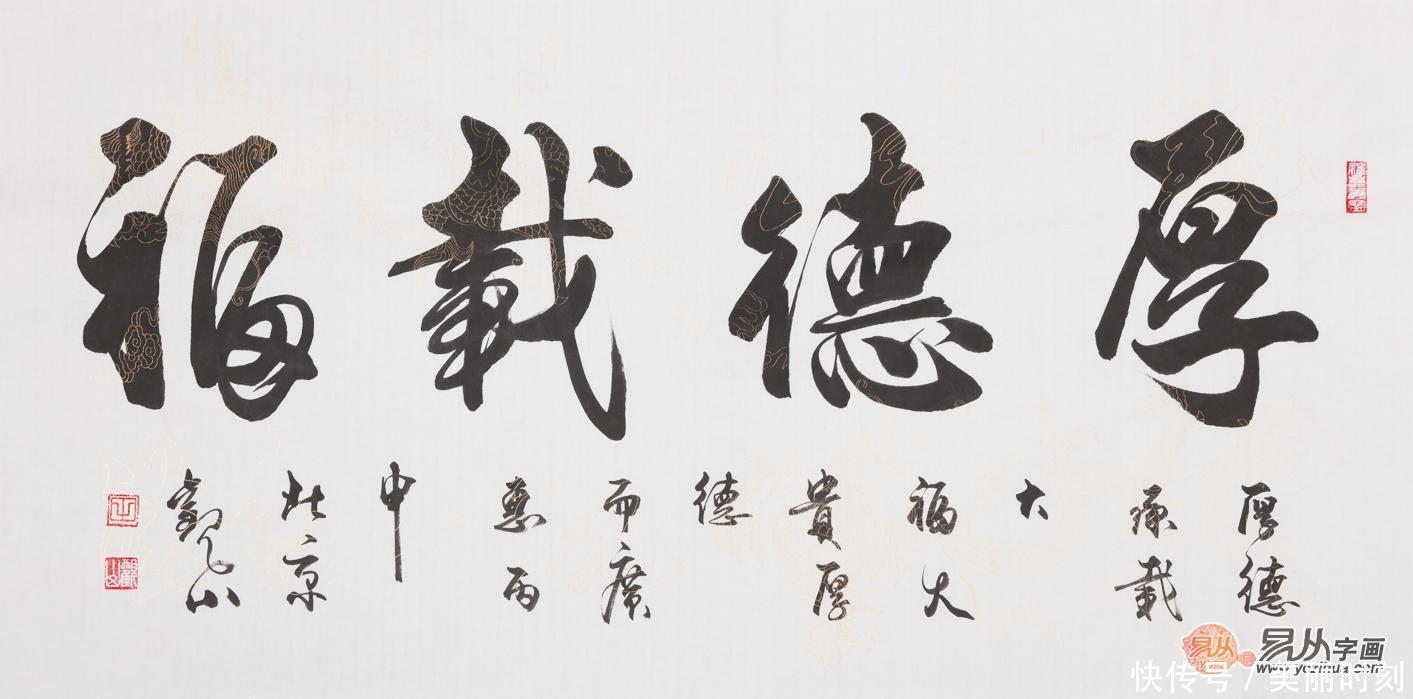 厚德載福
厚德
承載
大
福大
貴厚
德
而廣
惠丙
申
北京
觀山
易从字画
www.yczihua.com
快传号 / 美丽时刻